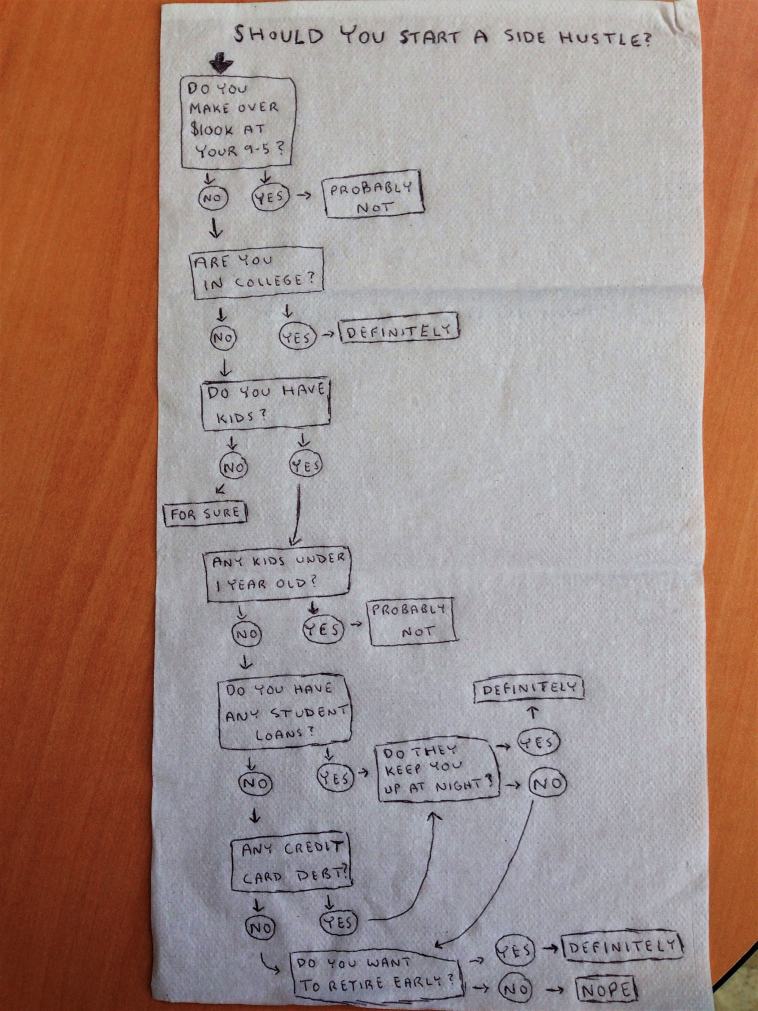 SHOULD YOU START A SIDE HUSTLE?
DO YOU
MAKE OVER
$100K AT
YOUR 9-5?
NO
YES
PROBABLY
NOT
ARE YOU
IN COLLEGE?
NO
YES
DEFINITELY
DO YOU HAVE
KIDS?
NO
YES
FOR SURE
ANY KIDS UNDER
1 YEAR OLD?
NO
YES
PROBABLY
NOT
DO YOU HAVE
ANY STUDENT
LOANS?
NO
YES
DO THEY
KEEP YOU
UP AT NIGHT?
YES
DEFINITELY
NO
ANY CREDIT
CARD DEBT?
NO
YES
DO YOU WANT
TO RETIRE EARLY?
YES
DEFINITELY
NO
NOPE